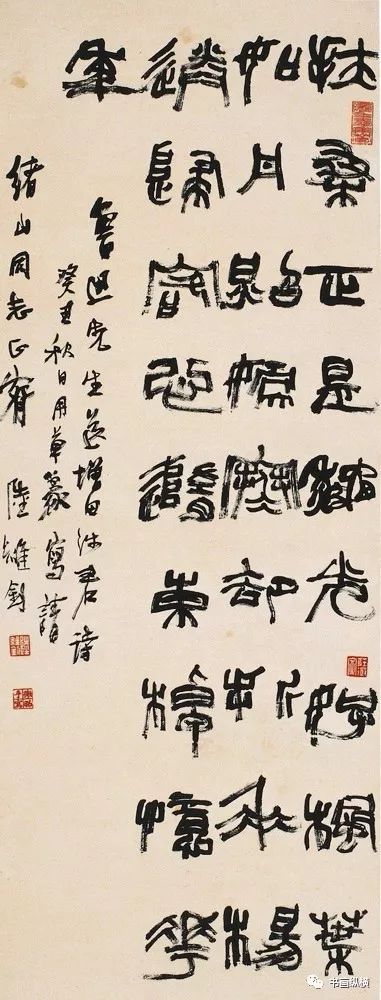 扶桑正是秋光好楓葉
如丹照嫩寒却折垂楊
送歸客心隨東棹憶華
年
魯迅先生送增田涉君詩
癸丑秋日用草篆寫請
緒山同志正 陸維釗
书画纵横